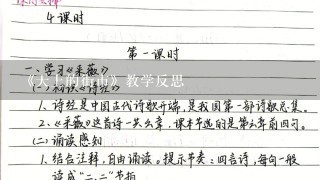 4课时
第一课时
一、学习《采薇》
《天上的街市》教学反思
(一)初识《诗经》
1.诗经是中国古代诗歌开端,是我国第一部诗歌总集。
2.《采薇》这首诗一共六章,课本节选的是第六章前四句。
(二)诵读感知
1.结合注释,自由诵读。提示节奏:四言诗,每句一般
读成"二、二"节拍